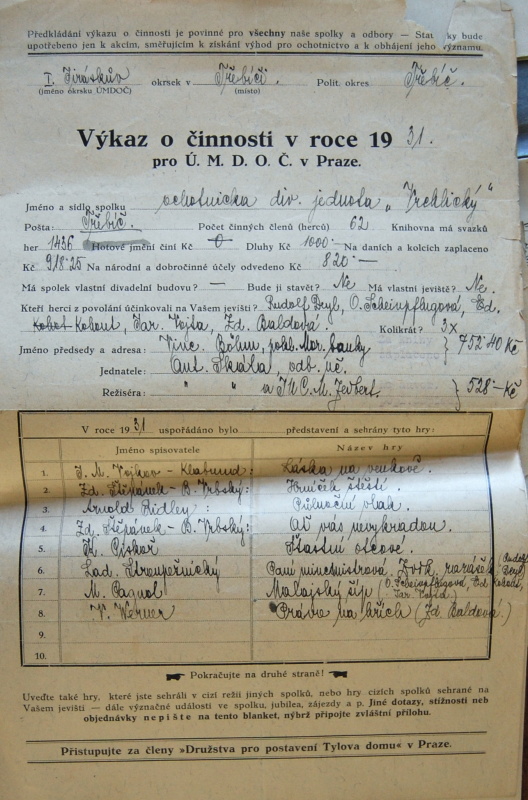 Předkládání výkazu o činnosti je povinné pro všechny naše spolky a odbory — ky bude
upotřebeno jen k akcím, směřujícím k získání výhod pro ochotnictvo a k obhájení jeho významu.
I. Jiráskův okrsek v Třebíči. Polit. okres Třebíč.
(jméno okrsku ÚMDOČ) (místo)
Výkaz o činnosti v roce 1931.
pro Ú. M. D. O. Č. v Praze.
Jméno a sídlo spolku ochotnická div. jednota „Vrchlický"
Pošta: Třebíč. Počet činných členů (herců) 62 Knihovna má svazků
her 1436 Hotové jmění činí Kč 0 Dluhy Kč 1000·— Na daních a kolcích zaplaceno
Kč 918·25 Na národní a dobročinné účely odvedeno Kč 820·—
Má spolek vlastní divadelní budovu? — Bude ji stavět? Ne Má vlastní jeviště? Ne.
Kteří herci z povolání účinkovali na Vašem jevišti? Rudolf Deyl, O. Scheinpflugová, Ed.
Kohout, Jar. Vojta, Zd. Baldová. Kolikrát? 3x
Jméno předsedy a adresa: Vinc. Böhm, pokl. Mor. banky } 752·40 Kč
Jednatele: Ant. Skála, odb. uč.
Režiséra: " " a } 528·— Kč
V roce 1931 uspořádáno bylo představení a sehrány tyto hry:
Jméno spisovatele Název hry
1. – Klabund: Láska na venkově.
2. Zd. Štěpánek – B. Vrbský: Hrníček štěstí.
3. Arnold Ridley: Půlnoční vlak.
4. Zd. Štěpánek – B. Vrbský: Ať vás nevykradou.
5. K. Piskoř Šťastní otcové.
6. Lad. Stroupežnický Paní mincmistrová, Zvík. rarášek (Rudolf Deyl)
7. M. Pagnol Malajský šíp (O. Scheinpflugová, Ed. Kohout, Jar. Vojta)
8. V. Werner Právo na hřích (Zd. Baldová.)
9.
10.
Pokračujte na druhé straně!
Uveďte také hry, které jste sehráli v cizí režii jiných spolků, nebo hry cizích spolků sehrané na
Vašem jevišti — dále význačné události ve spolku, jubilea, zájezdy a p. Jiné dotazy, stížnosti neb
objednávky nepište na tento blanket, nýbrž připojte zvláštní přílohu.
Přistupujte za členy »Družstva pro postavení Tylova domu« v Praze.